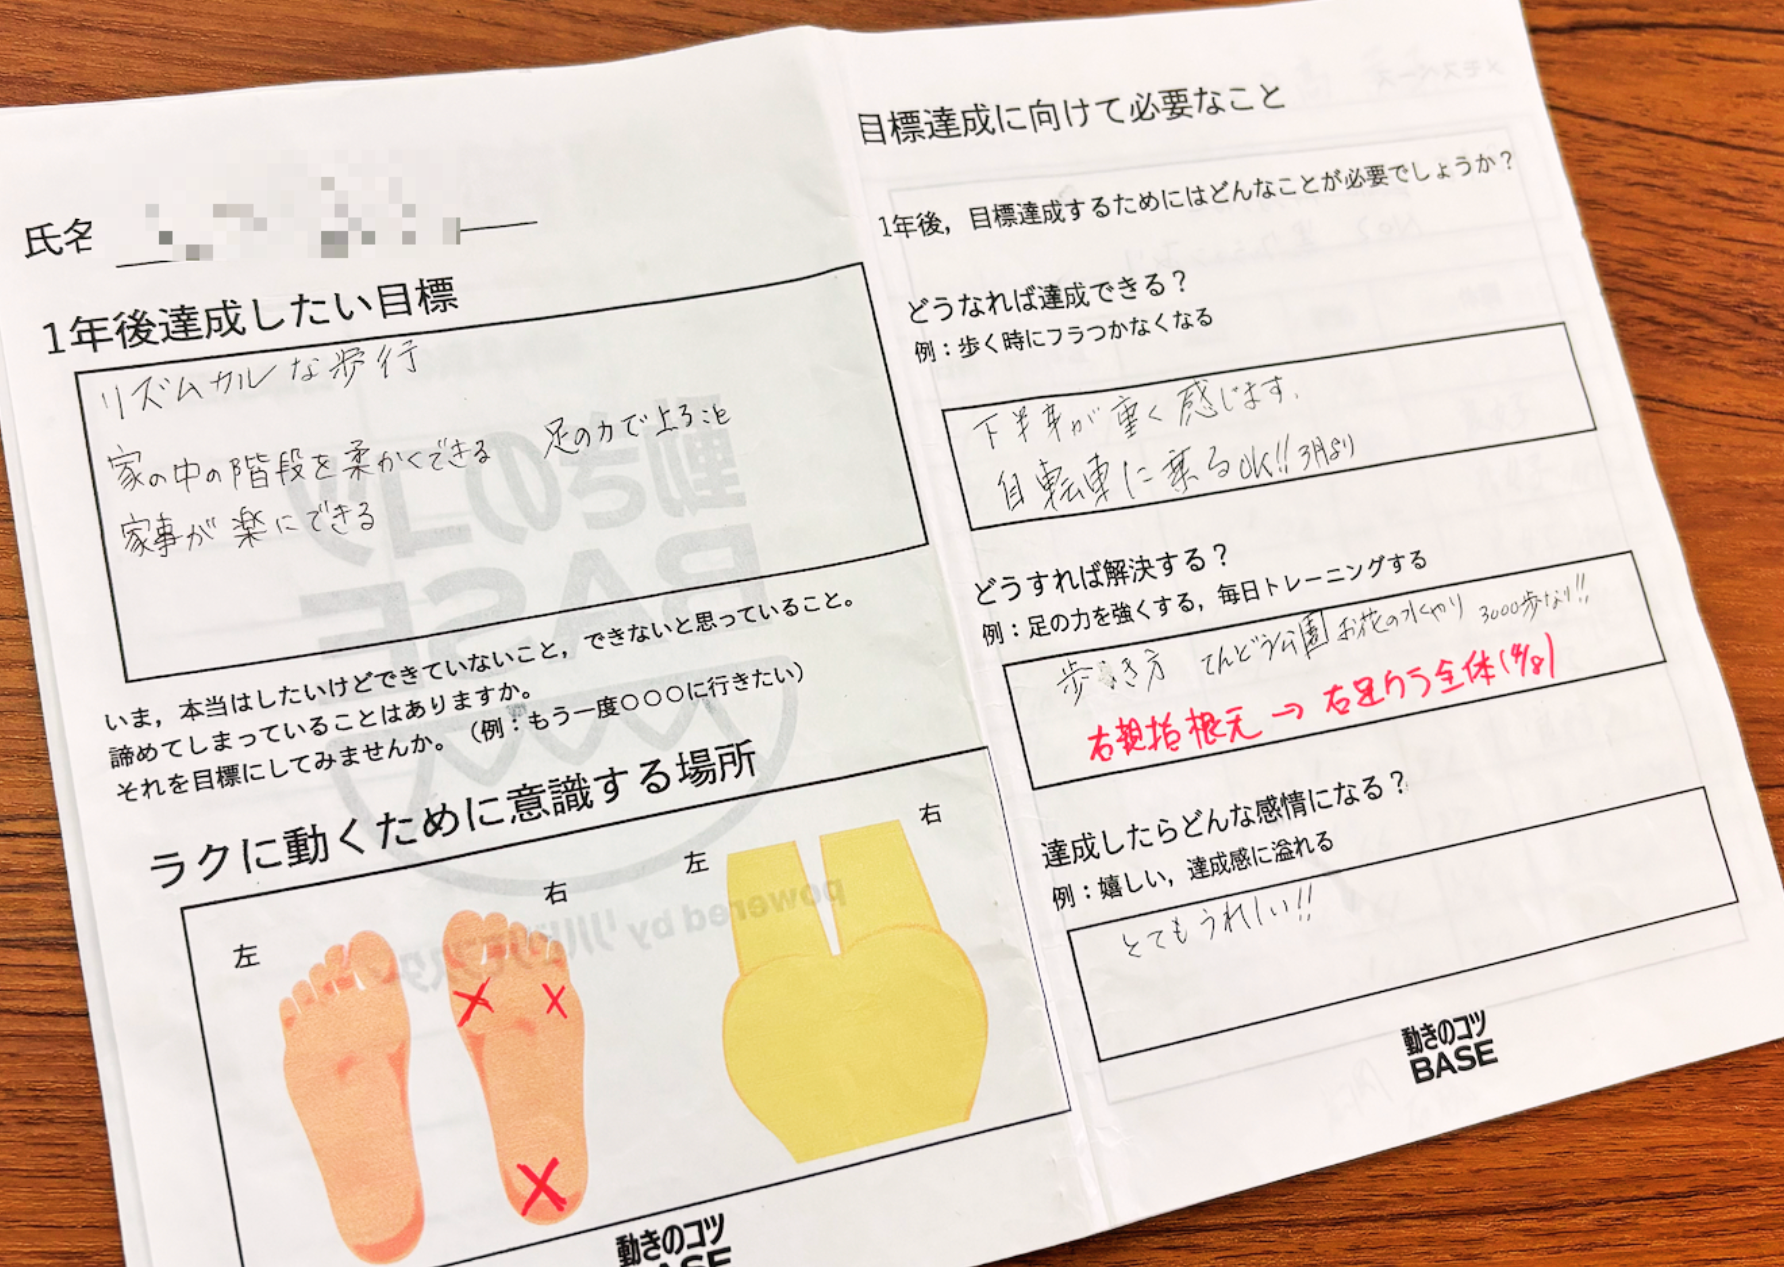 氏名
1年後達成したい目標
リズムカルな歩行
家の中の階段を柔かくできる 足の力で上ること
家事が楽にできる
いま，本当はしたいけどできていないこと，できないと思っていること。
諦めてしまっていることはありますか。
それを目標にしてみませんか。（例：もう一度○○○に行きたい）
ラクに動くために意識する場所
左
右
左
右
動きのコツ
BASE
目標達成に向けて必要なこと
1年後，目標達成するためにはどんなことが必要でしょうか？
どうなれば達成できる？
例：歩く時にフラつかなくなる
下半身が重く感じます.
自転車に乗るOK!! 3月より
どうすれば解決する？
例：足の力を強くする，毎日トレーニングする
歩き方 てんどう公園 お花の水やり 3000歩なり!!
右親指根元→右足ウラ全体(4/8)
達成したらどんな感情になる？
例：嬉しい，達成感に溢れる
とてもうれしい!!
動きのコツ
BASE